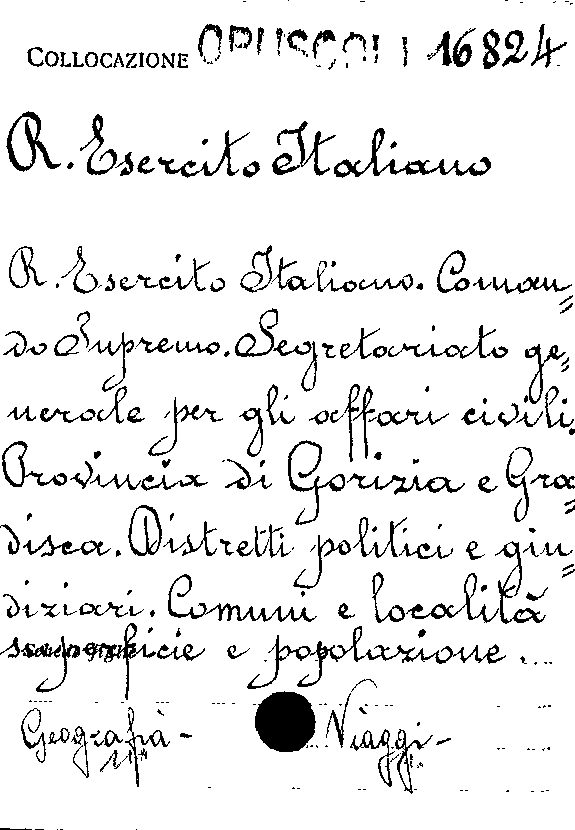 COLLOCAZIONE OPUSCOLI 16824
R. Esercito Italiano
R. Esercito Italiano. Coman=
do Supremo. Segretariato ge=
nerale per gli affari civili.
Provincia di Gorizia e Gra=
disca. Distretti politici e giu=
diziari. Comuni e località
superficie e popolazione.
Geografia - Viaggi -